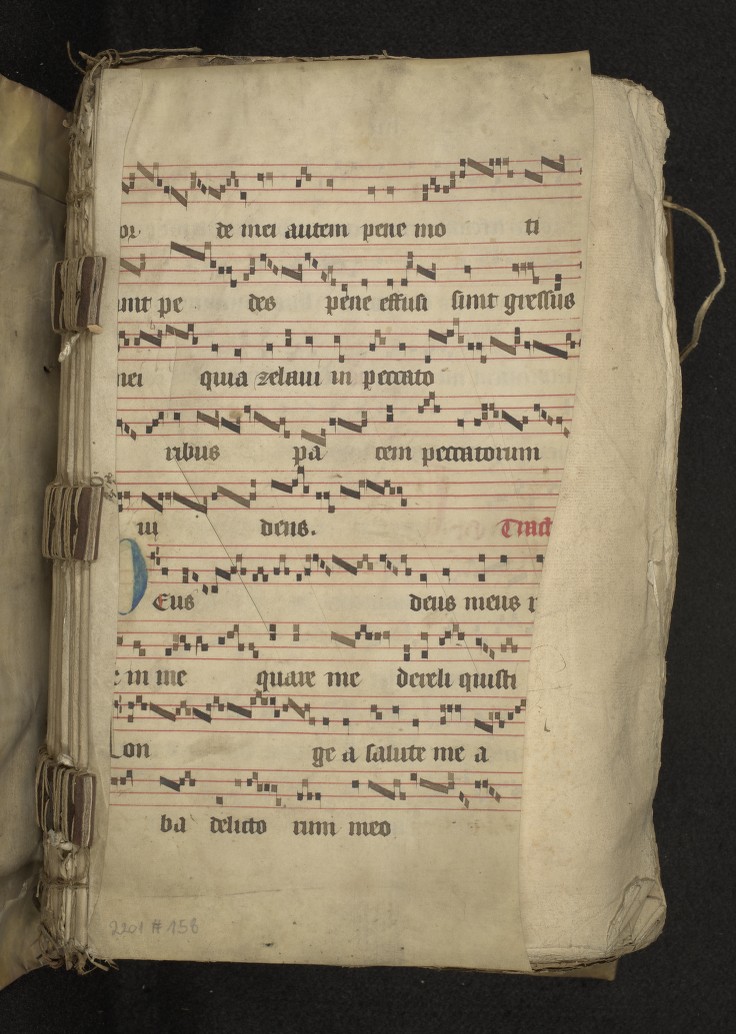 or de mei autem pene mo ti
unt pe des pene effusi sunt gressus
mei quia zelaui in peccato
ribus pa cem peccatorum
ui dens. Tract
Deus deus meus r
e in me quare me dereli quisti
Lon ge a salute me a
ba delicto rum meo
2201 # 158